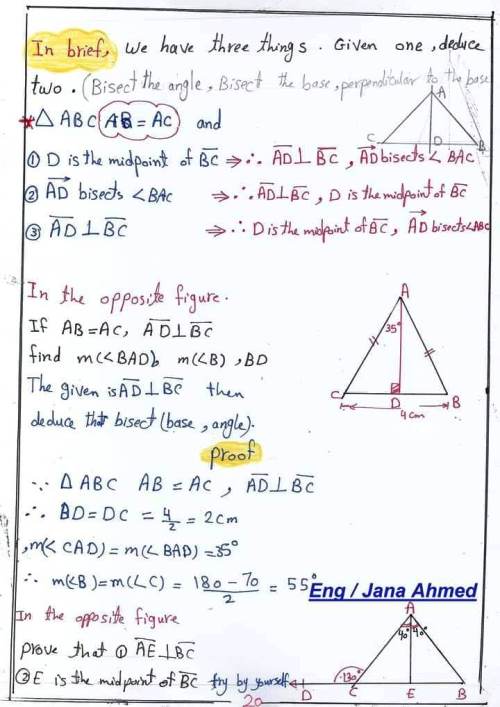 In brief, we have three things. Given one, deduce
two. (Bisect the angle, Bisect the base, perpendicular to the base
A
C D B
* △ ABC AB = AC and
① D is the midpoint of BC ⇒ ∴ AD ⊥ BC, AD bisects < BAC
② AD bisects <BAC ⇒ ∴ AD ⊥ BC, D is the midpoint of BC
③ AD ⊥ BC ⇒ ∴ D is the midpoint of BC, AD bisects <ABC
In the opposite figure.
If AB = AC, AD ⊥ BC
find m(<BAD), m(<B), BD
The given is AD ⊥ BC then
deduce that bisect (base, angle).
A
35°
C D B
4 cm
proof
∵ △ ABC AB = AC, AD ⊥ BC
∴ BD = DC = 4/2 = 2cm
, m(< CAD) = m(<BAD) = 35°
∴ m(<B) = m(<C) = 180 - 70 / 2 = 55°
Eng / Jana Ahmed
In the opposite figure
prove that ① AE ⊥ BC
② E is the midpoint of BC try by yourself
A
40° 40°
130°
D C E B
20